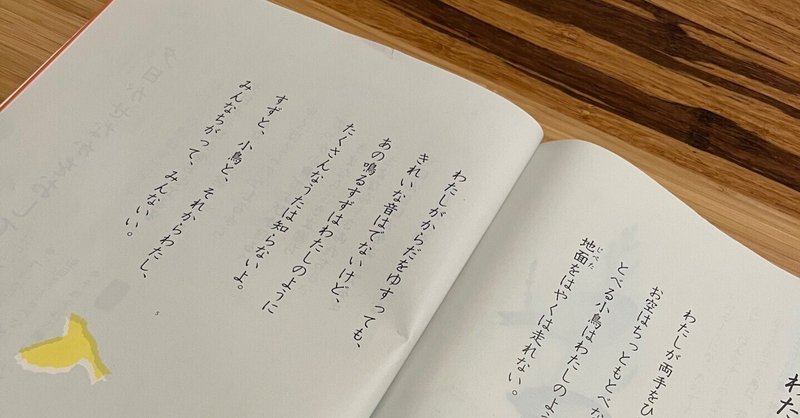 わた
わたしが両手をひ
お空はちっともとべな
とべる小鳥はわたしのよう
地面をはやくは走れない。
じべた
わたしがからだをゆすっても、
きれいな音はでないけど、
あの鳴るすずはわたしのように
たくさんなうたは知らないよ。
すずと、小鳥と、それからわたし、
みんなちがって、みんないい。
5